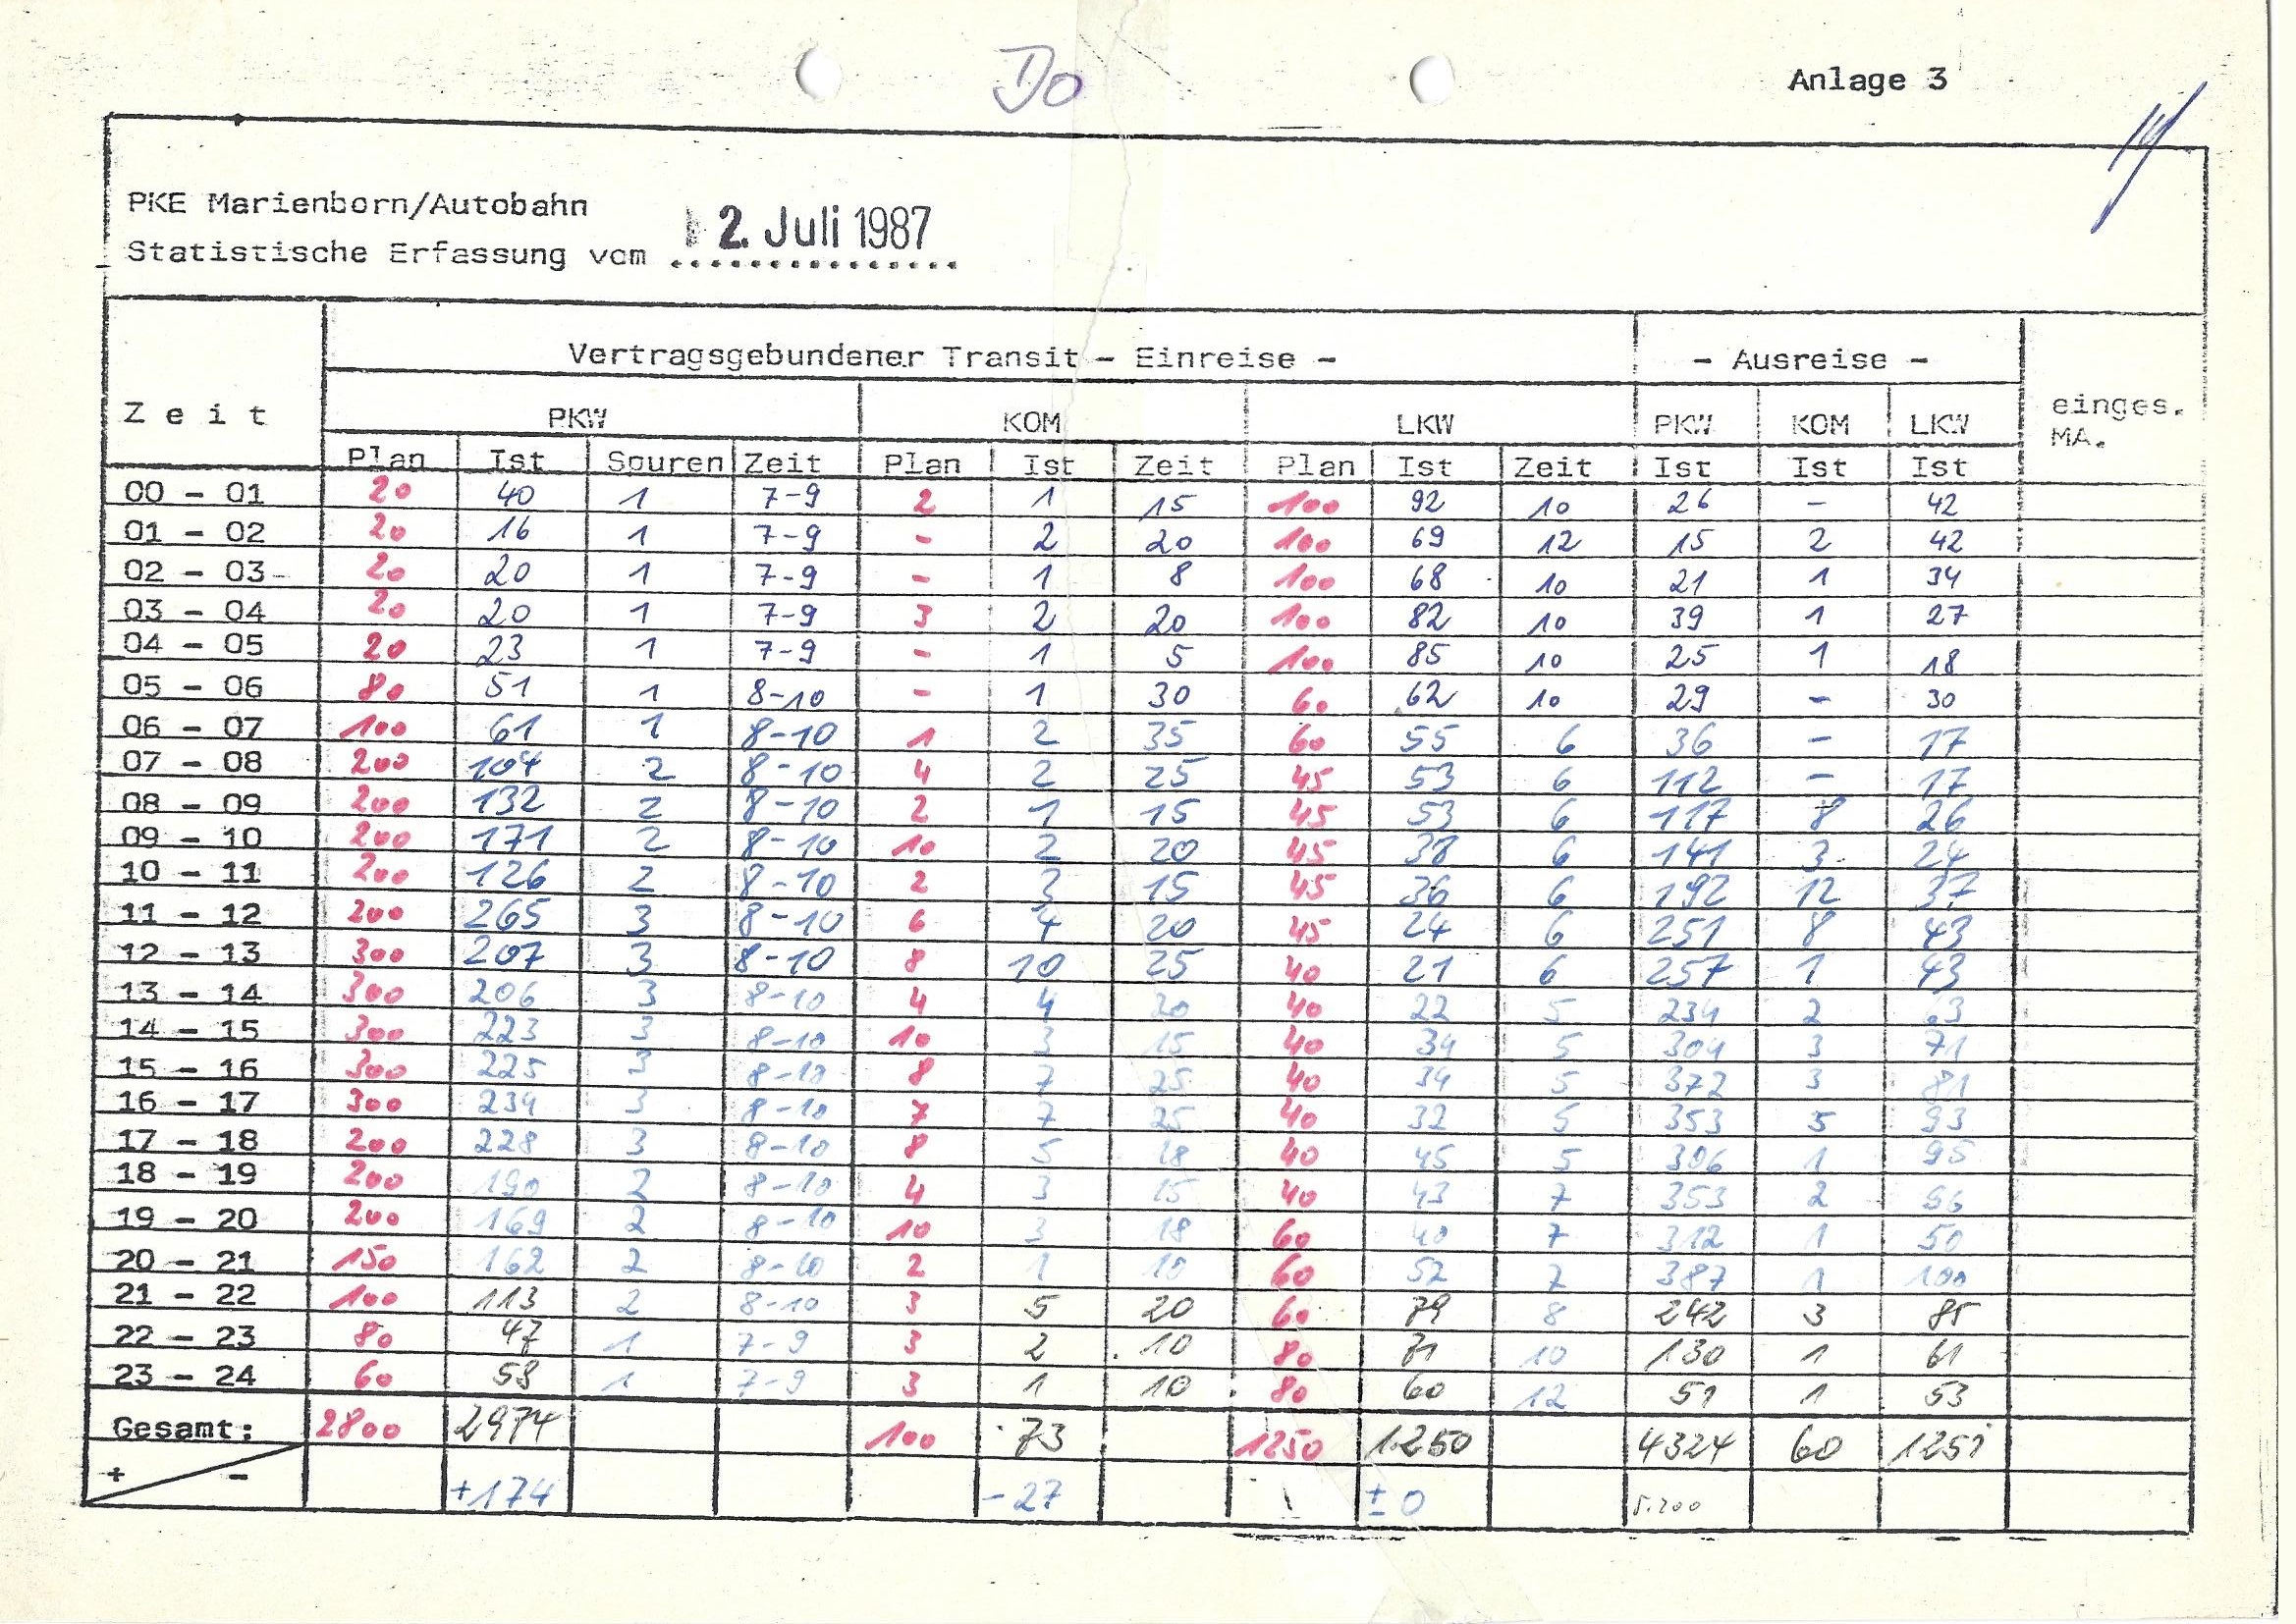 Do
Anlage 3
PKE Marienborn/Autobahn
Statistische Erfassung vom 2. Juli 1987
Vertragsgebundener Transit - Einreise - - Ausreise -
Zeit PKW KOM LKW PKW KOM LKW einges. MA.
Plan Ist Spuren Zeit Plan Ist Zeit Plan Ist Zeit Ist Ist Ist
00 - 01 20 40 1 7-9 2 1 15 100 92 10 26 - 42
01 - 02 20 16 1 7-9 - 2 20 100 69 12 15 2 42
02 - 03 20 20 1 7-9 - 1 8 100 68 10 21 1 34
03 - 04 20 20 1 7-9 3 2 20 100 82 10 39 1 27
04 - 05 20 23 1 7-9 - 1 5 100 85 10 25 1 18
05 - 06 80 51 1 8-10 - 1 30 60 62 10 29 - 30
06 - 07 100 61 1 8-10 1 2 35 60 55 6 36 - 17
07 - 08 200 104 2 8-10 4 2 25 45 53 6 112 - 17
08 - 09 200 132 2 8-10 2 1 15 45 53 6 117 8 26
09 - 10 200 171 2 8-10 10 2 20 45 38 6 141 3 24
10 - 11 200 126 2 8-10 2 3 15 45 36 6 192 12 37
11 - 12 200 265 3 8-10 6 4 20 45 24 6 251 8 43
12 - 13 300 207 3 8-10 8 10 25 40 21 6 257 1 43
13 - 14 300 206 3 8-10 4 4 20 40 22 5 234 2 63
14 - 15 300 223 3 8-10 10 3 15 40 34 5 304 3 71
15 - 16 300 225 3 8-10 8 7 25 40 34 5 372 3 81
16 - 17 300 234 3 8-10 7 7 25 40 32 5 353 5 93
17 - 18 200 228 3 8-10 8 5 18 40 45 5 306 1 95
18 - 19 200 190 2 8-10 4 3 15 40 43 7 353 2 56
19 - 20 200 169 2 8-10 10 3 18 60 40 7 312 1 50
20 - 21 150 162 2 8-10 2 1 10 60 52 7 387 1 100
21 - 22 100 113 2 8-10 3 5 20 60 79 8 242 3 85
22 - 23 80 47 1 7-9 3 2 10 80 71 10 130 1 61
23 - 24 60 58 1 7-9 3 1 10 80 60 12 51 1 53
Gesamt: 2800 2974 100 73 1250 1250 4324 60 1251
+ - +174 -27 ± 0